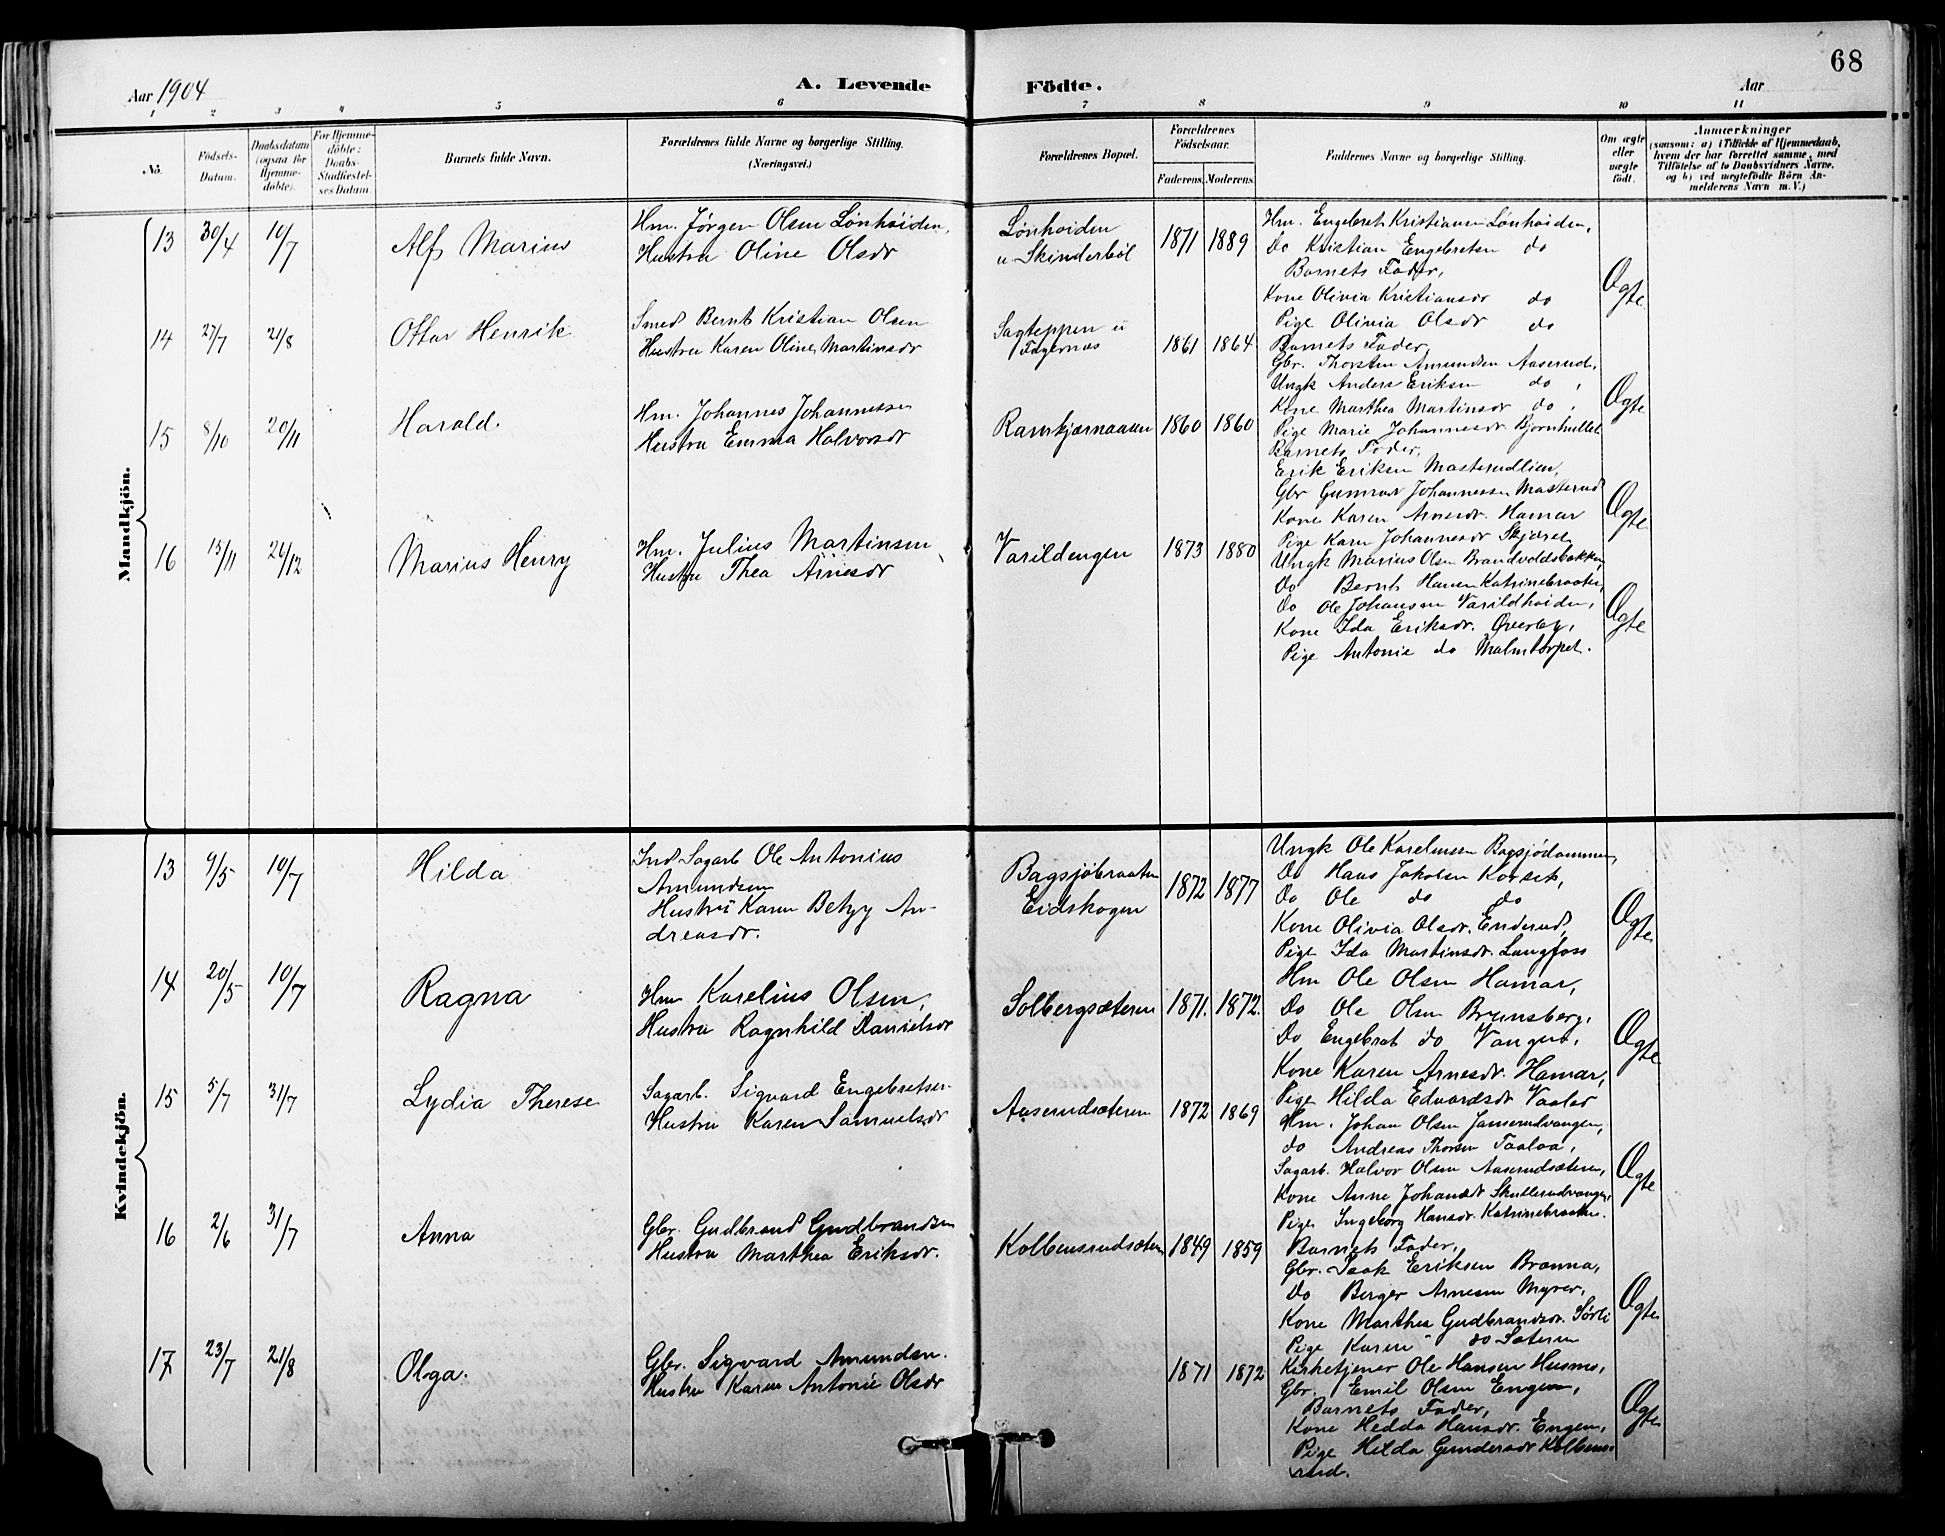 68
Aar 1904
A. Levende
Födte.
Aar
1 2 3 4 5 6 7 8 9 10 11
No.
Födsels-
Datum.
Daabsdatum
(ogsaa for
Hjemme-
döbte).
For Hjemme-
döbte:
Daabs-
Stadfæstel-
ses Datum.
Barnets fulde Navn.
Forældrenes fulde Navne og borgerlige Stilling.
(Næringsvei.)
Forældrenes Bopæl.
Forældrenes
Födselsaar.
Faderens. Moderens.
Faddernes Navne og borgerlige Stilling.
Om ægte
eller
uægte
födt.
Anmærkninger
(saasom: a) i Tilfælde af Hjemmedaab,
hvem der har forrettet samme, med
Tilföielse af to Daabsvidners Navne,
og b) ved uægtefödte Börn An-
melderens Navn m. V.)
Mandkjön.
13 30/4 10/7 Alf Marius
Hm. Jørgen Olsen Lønhöiden,
Hustru Oline Olsdr
Lønhoiden
u. Skinderböl
1871 1889
Hm. Engebret Kristiansen Lønhoiden,
Do Kristian Engebretsen do
Barnets Fader,
Kone Olivia Kristiansdr do
Pige Olivia Olsdr do
Ægte
14 27/7 21/8 Ottar Henrik
Smed Bernt Kristian Olsen
Hustru Karen Oline Martinsdr
Sagteppen u
Fagernæs
1861 1864
Barnets Fader,
Gbr. Thorsten Amundsen Aaserud,
Ungk Anders Eriksen do,
Kone Marthea Martinsdr do,
Pige Marie Johannesdr Bjornhullet
Ægte
15 8/10 20/11 Harald.
Hm. Johannes Johannessen
Hustru Emma Halvorsdr
Ramkjærnaasen
1860 1860
Barnets Fader,
Erik Eriksen Masterudlien,
Gbr Gunnar Johannessen Masterud
Kone Karen Arnesdr. Hamar
Pige Karen Johannesdr Skjæret
Ægte
16 15/11 26/12 Marius Henry
Hm. Julius Martinsen,
Hustru Thea Arnesdr
Varildengen
1873 1880
Ungk Marius Olsen Brandvoldsbakken,
Do Bernt Hansen Katrinebraaten,
Do Ole Johansen Varildhoiden,
Kone Ida Eriksdr. Øverby,
Pige Antonie do Malmtorpet.
Ægte
Kvindekjön.
13 9/5 10/7 Hilda
Ind Sagarb Ole Antonius
Amundsen
Hustru Karen Betzy An-
dreasdr.
Bagsjöbraaten
Eidskogen
1872 1877
Ungk Ole Kareliussen Bagsjödammen,
Do Hans Jakobsen Korset,
Do Ole do do
Kone Olivia Olsdr. Enderud,
Pige Ida Martinsdr. Langfoss
Ægte
14 20/5 10/7 Ragna
Hm Karelius Olsen,
Hustru Ragnhild Danielsdr
Solbergsæteren
1871. 1872.
Hm Ole Olsen Hamar,
Do Ole Olsen Brunsberg,
Do Engebret do Vangen,
Kone Karen Arnesdr. Hamar,
Pige Hilda Edvardsdr Vaaler
Ægte
15 5/7 31/7 Lydia Therese
Sagarb. Sigvard Engebretsen
Hustru Karen Samuelsdr
Aaserudsæteren
1872 1869
Hm. Johan Olsen Janserudvangen,
do Andreas Thorsen Taaloa,
Sagarb. Halvor Olsen Aaserudsæteren,
Kone Anne Johansdr Skullerudvangen,
Pige Ingeborg Hansdr. Katrinebraaten.
Ægte
16 2/6 31/7 Anna
Gbr. Gudbrand Gudbrandsen
Hustru Marthea Eriksdr.
Kolbensrudsæteren
1849 1859
Barnets Fader,
Gbr. Isak Eriksen Branna,
Do Berger Arnesen Myrer,
Kone Marthea Gudbrandsdr. Sørli
Pige Karen " do Sæteren
Ægte
17 23/7 21/8 Olga.
Gbr. Sigvard Amundsen.
Hustru Karen Antonie Olsdr
1871 1872
Kirketjener Ole Hansen Husmo,
Gbr. Emil Olsen Engen,
Barnets Fader,
Kone Hedda Hansdr. Engen,
Pige Hilda Gundersdr Kolbens
rud.
Ægte